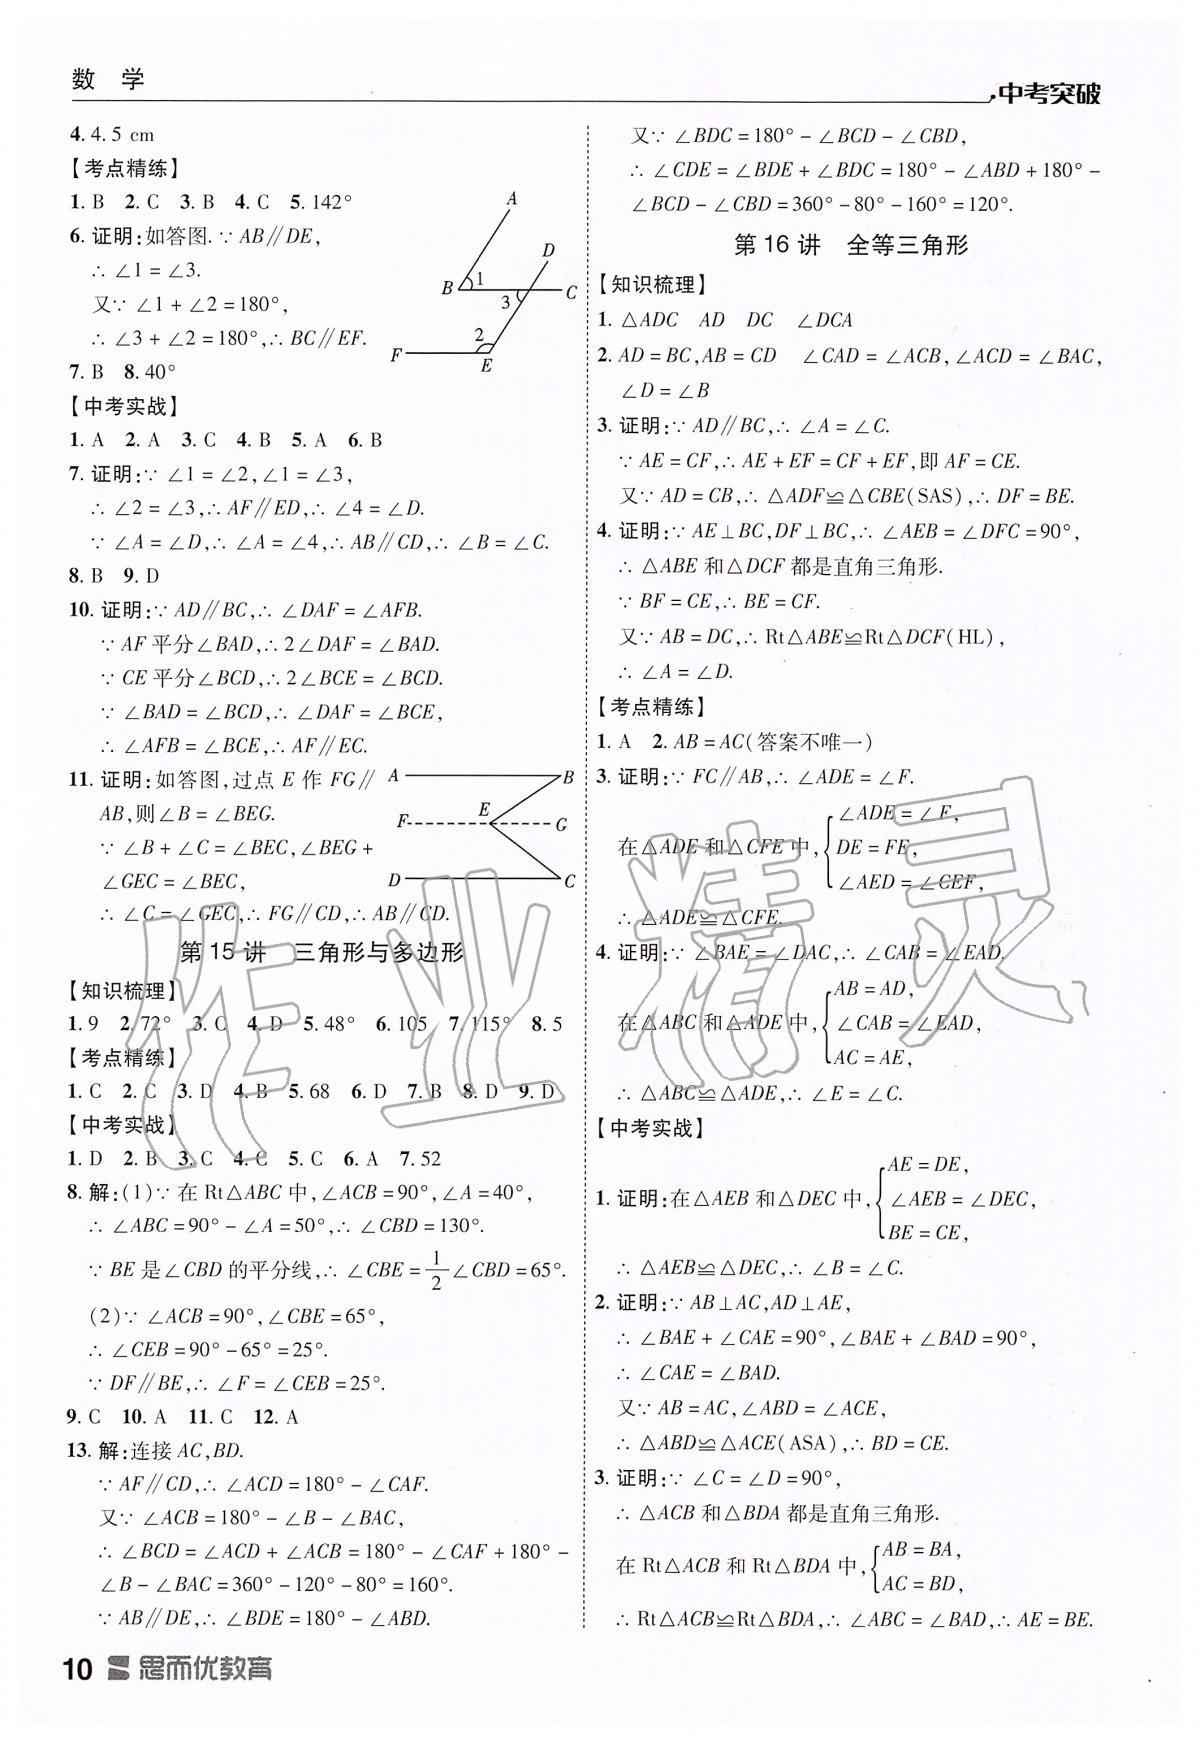 数 学
中考突破
4. 4.5 cm
【考点精练】
1. B 2. C 3. B 4. C 5. 142°
6. 证明:如答图.∵ AB∥DE,
∴ ∠1=∠3.
又∵ ∠1+∠2=180°,
∴ ∠3+∠2=180°,∴ BC∥EF.
A
D
B
1
3
C
2
F
E
7. B 8. 40°
【中考实战】
1. A 2. A 3. C 4. B 5. A 6. B
7. 证明:∵ ∠1=∠2,∠1=∠3,
∴ ∠2=∠3,∴ AF∥ED,∴ ∠4=∠D.
∵ ∠A=∠D,∴ ∠A=∠4,∴ AB∥CD,∴ ∠B=∠C.
8. B 9. D
10. 证明:∵ AD∥BC,∴ ∠DAF=∠AFB.
∵ AF 平分∠BAD,∴ 2∠DAF=∠BAD.
∵ CE 平分∠BCD,∴ 2∠BCE=∠BCD.
∵ ∠BAD=∠BCD,∴ ∠DAF=∠BCE,
∴ ∠AFB=∠BCE,∴ AF∥EC.
11. 证明:如答图,过点 E 作 FG∥
AB,则∠B=∠BEG.
∵ ∠B+∠C=∠BEC,∠BEG+
∠GEC=∠BEC,
∴ ∠C=∠GEC,∴ FG∥CD,∴ AB∥CD.
A
B
E
F
G
D
C
第 15 讲 三角形与多边形
【知识梳理】
1. 9 2. 72° 3. C 4. D 5. 48° 6. 105 7. 115° 8. 5
【考点精练】
1. C 2. C 3. D 4. B 5. 68 6. D 7. B 8. D 9. D
【中考实战】
1. D 2. B 3. C 4. C 5. C 6. A 7. 52
8. 解:(1)∵ 在 Rt△ABC 中,∠ACB=90°,∠A=40°,
∴ ∠ABC=90°-∠A=50°,∴ ∠CBD=130°.
∵ BE 是∠CBD 的平分线,∴ ∠CBE=1/2∠CBD=65°.
(2)∵ ∠ACB=90°,∠CBE=65°,
∴ ∠CEB=90°-65°=25°.
∵ DF∥BE,∴ ∠F=∠CEB=25°.
9. C 10. A 11. C 12. A
13. 解:连接 AC,BD.
∵ AF∥CD,∴ ∠ACD=180°-∠CAF.
又∵ ∠ACB=180°-∠B-∠BAC,
∴ ∠BCD=∠ACD+∠ACB=180°-∠CAF+180°-
∠B-∠BAC=360°-120°-80°=160°.
∵ AB∥DE,∴ ∠BDE=180°-∠ABD.
又∵ ∠BDC=180°-∠BCD-∠CBD,
∴ ∠CDE=∠BDE+∠BDC=180°-∠ABD+180°-
∠BCD-∠CBD=360°-80°-160°=120°.
第 16 讲 全等三角形
【知识梳理】
1. △ADC AD DC ∠DCA
2. AD=BC,AB=CD ∠CAD=∠ACB,∠ACD=∠BAC,
∠D=∠B
3. 证明:∵ AD∥BC,∴ ∠A=∠C.
∵ AE=CF,∴ AE+EF=CF+EF,即 AF=CE.
又∵ AD=CB,∴ △ADF≌△CBE(SAS),∴ DF=BE.
4. 证明:∵ AE⊥BC,DF⊥BC,∴ ∠AEB=∠DFC=90°,
∴ △ABE 和△DCF 都是直角三角形.
∵ BF=CE,∴ BE=CF.
又∵ AB=DC,∴ Rt△ABE≌Rt△DCF(HL),
∴ ∠A=∠D.
【考点精练】
1. A 2. AB=AC(答案不唯一)
3. 证明:∵ FC∥AB,∴ ∠ADE=∠F.
∠ADE=∠F,
在△ADE 和△CFE 中,{DE=FE,
∠AED=∠CEF,
∴ △ADE≌△CFE.
4. 证明:∵ ∠BAE=∠DAC,∴ ∠CAB=∠EAD.
AB=AD,
在△ABC 和△ADE 中,{∠CAB=∠EAD,
AC=AE,
∴ △ABC≌△ADE,∴ ∠E=∠C.
【中考实战】
AE=DE,
1. 证明:在△AEB 和△DEC 中,{∠AEB=∠DEC,
BE=CE,
∴ △AEB≌△DEC,∴ ∠B=∠C.
2. 证明:∵ AB⊥AC,AD⊥AE,
∴ ∠BAE+∠CAE=90°,∠BAE+∠BAD=90°,
∴ ∠CAE=∠BAD.
又∵ AB=AC,∠ABD=∠ACE,
∴ △ABD≌△ACE(ASA),∴ BD=CE.
3. 证明:∵ ∠C=∠D=90°,
∴ △ACB 和△BDA 都是直角三角形.
在 Rt△ACB 和 Rt△BDA 中,{AB=BA,
AC=BD,
∴ Rt△ACB≌Rt△BDA,∴ ∠ABC=∠BAD,∴ AE=BE.
作业精灵
10 思而优教育